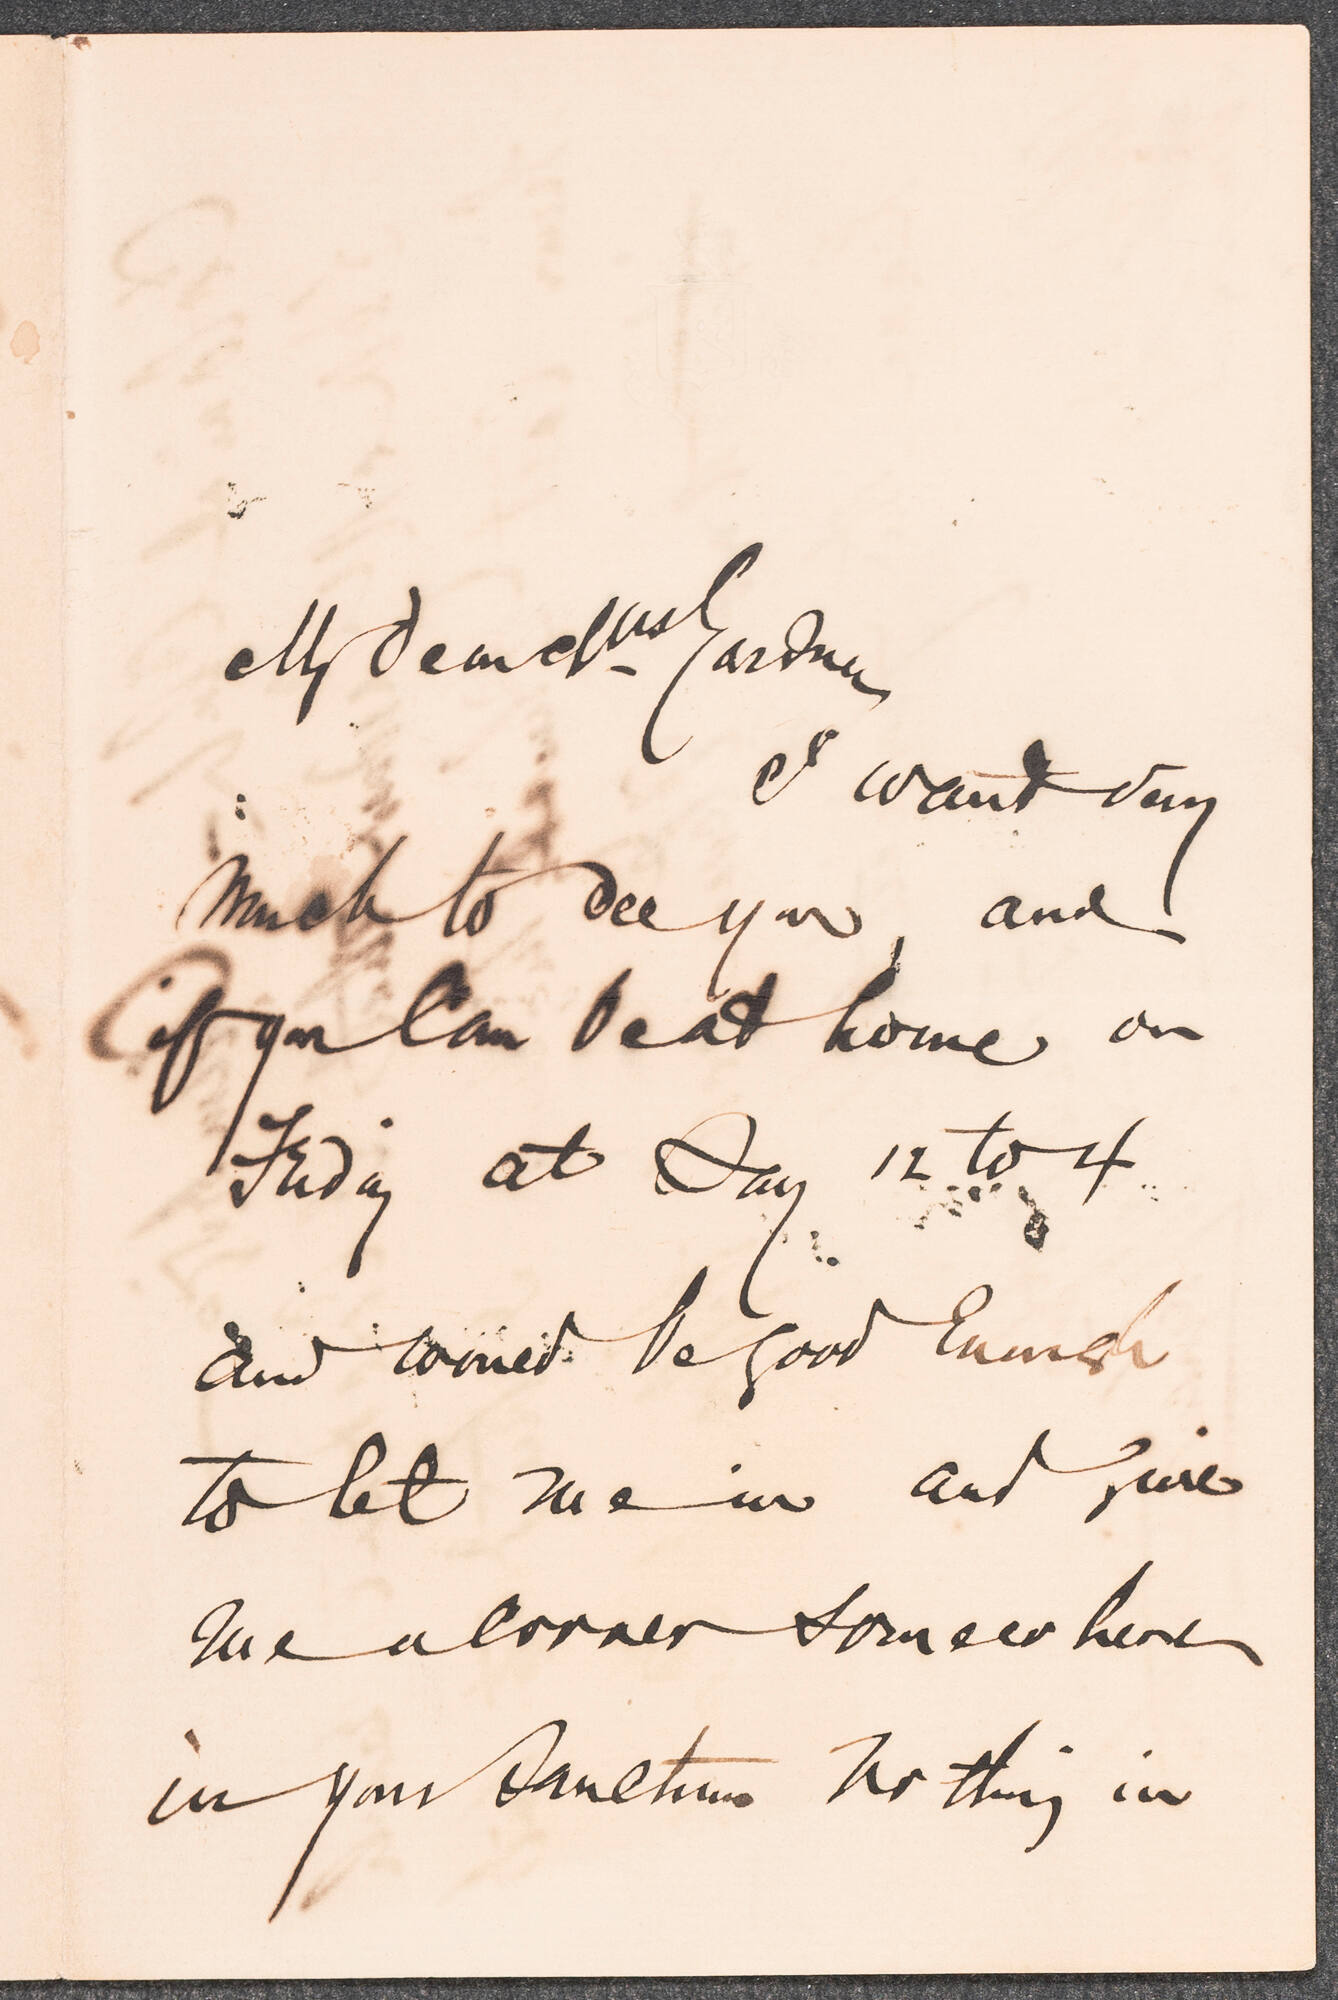 My dear Mrs. Gardner
I want very
much to see you, and
if you can be at home on
Friday at say 12 to 4
and would be good enough
to let me in and give
me a corner somewhere
in your sanctum nothing in